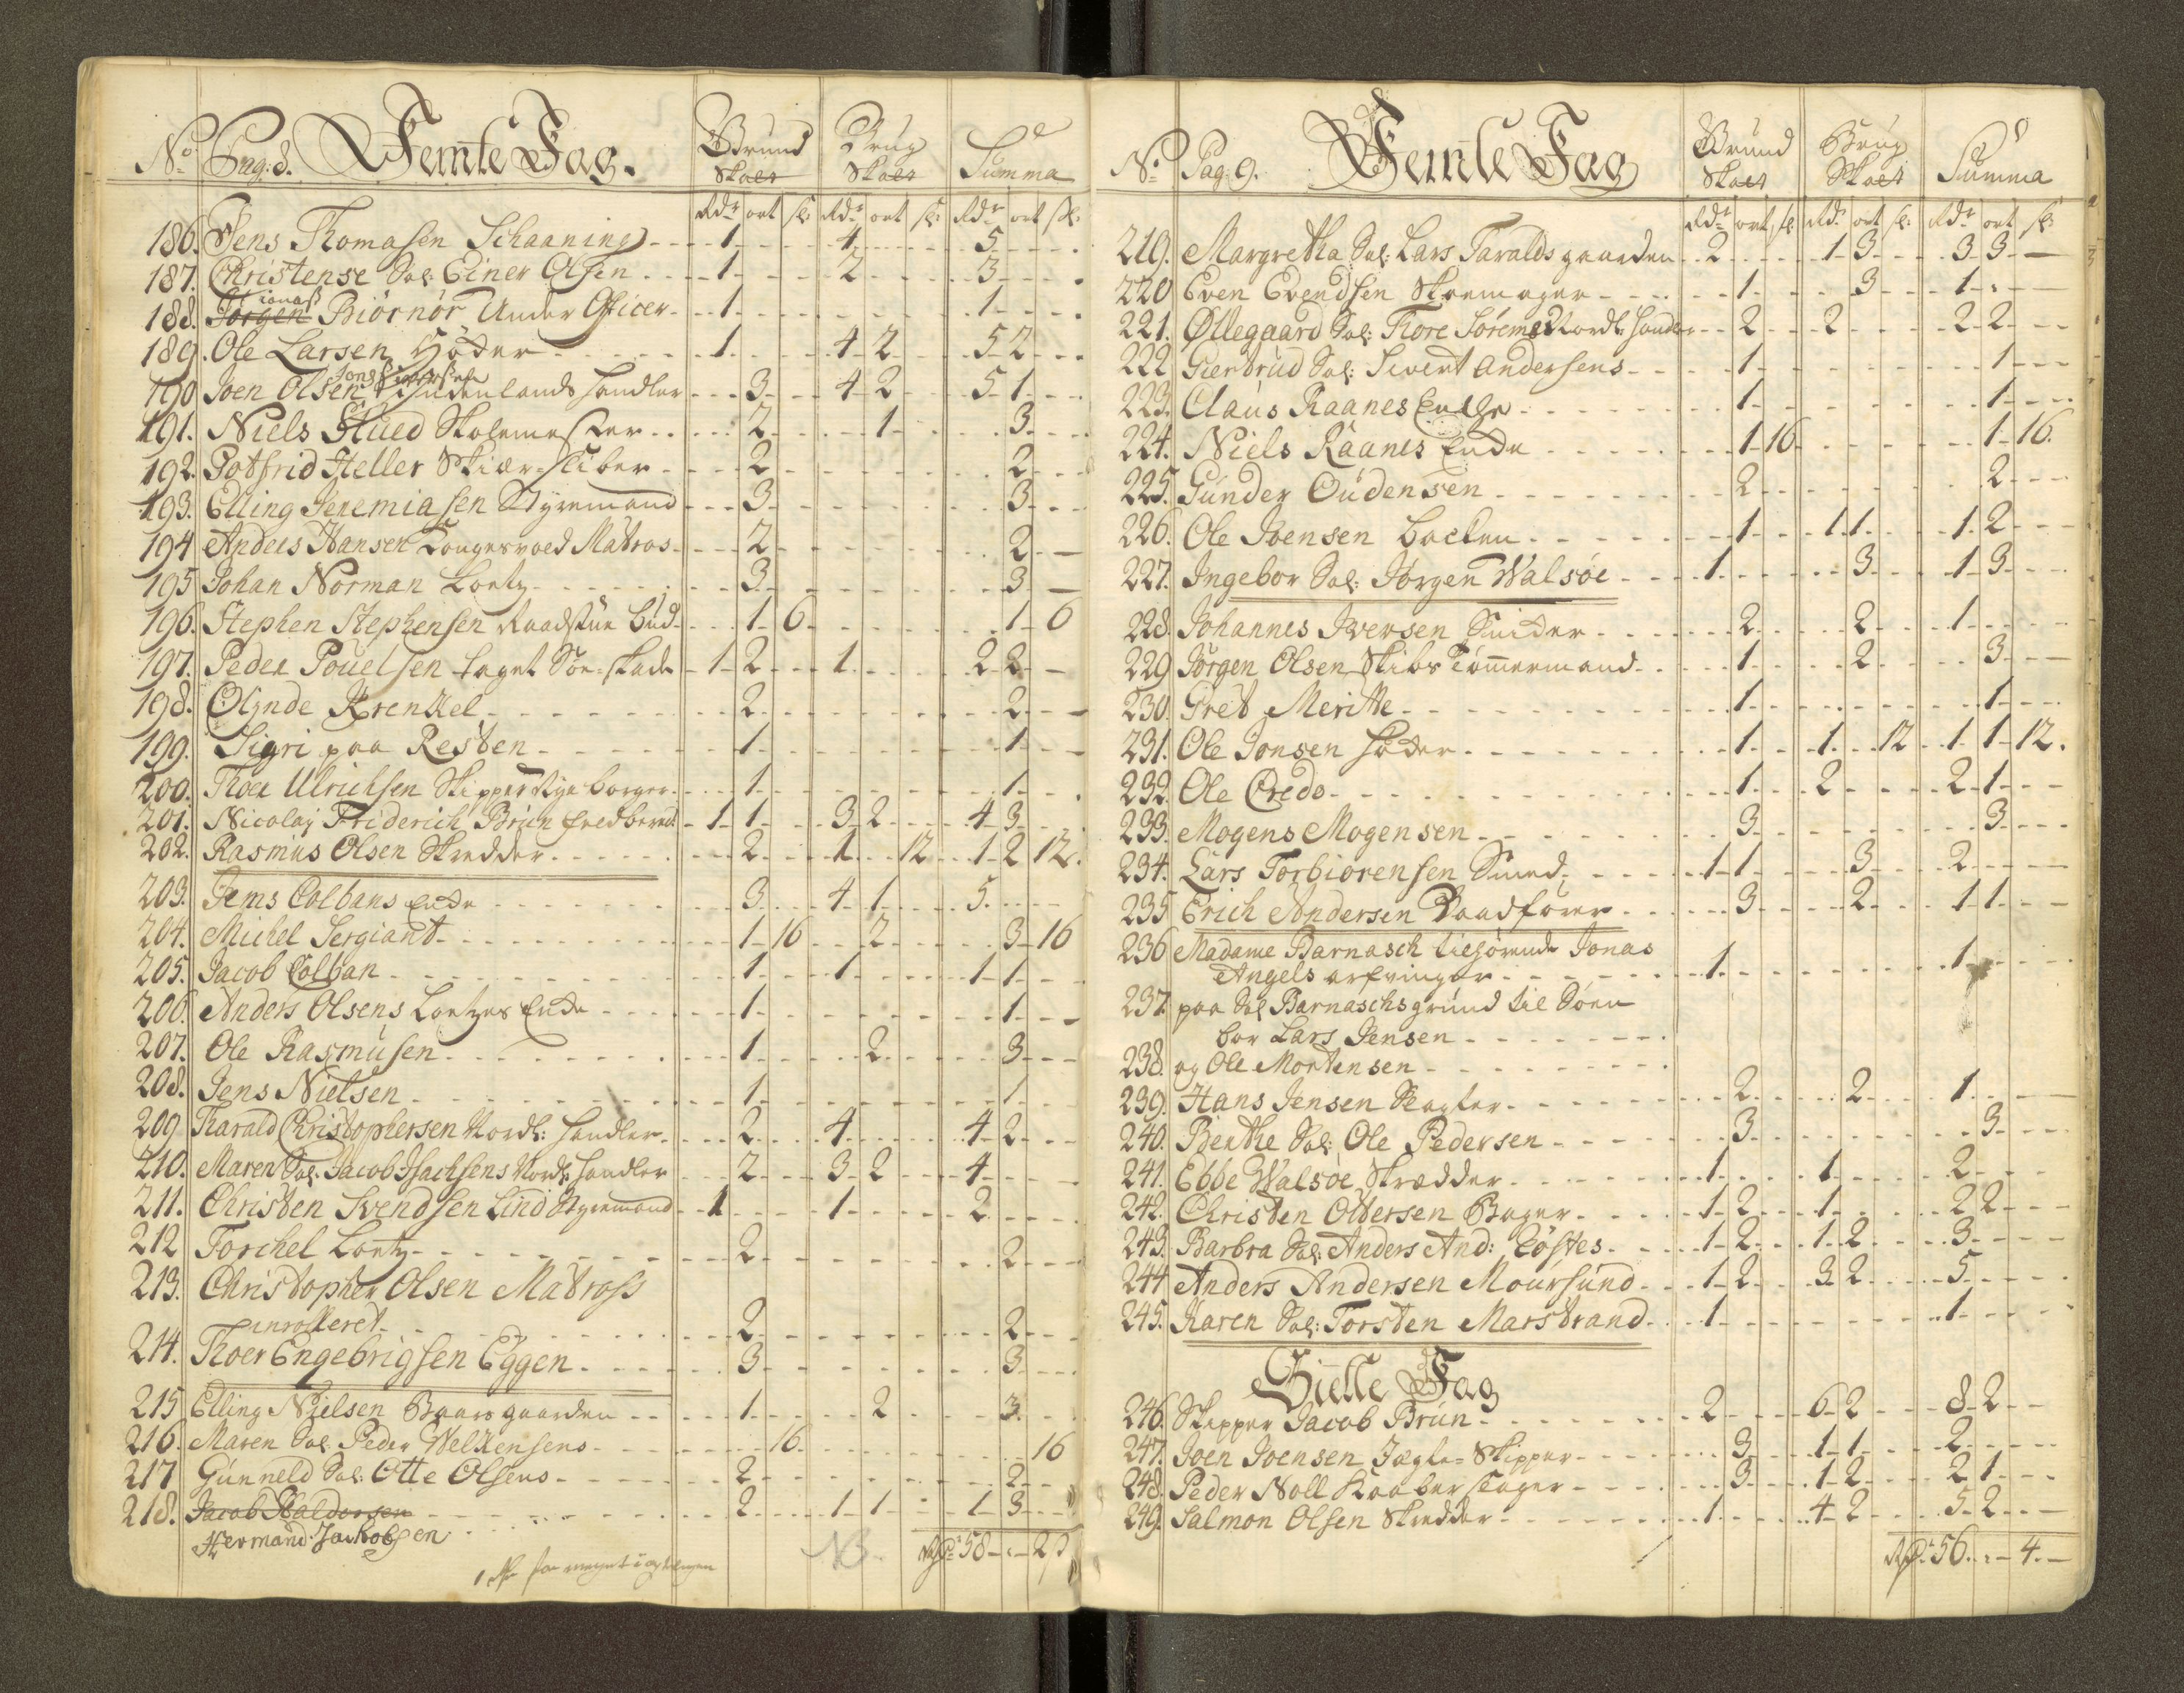 No Pag: 8. Femte Fag. Grund Skatt Brug Skatt Summa
Rdr ort sk: Rdr ort sk: Rdr ort sk:
186. Jens Thomasen Schaaning 1 4 5
187. Christense Sal: Einer Olsen 1 2 3
Jonas
188. Jørgen Biørnør Under Officer 1 1
189. Ole Larsen 1 4 2 5 2
190 Joen Olsen handler 3 4 2 5 1
191. Niels Stued Skolemester 2 1 3
192. Gotfrid Heller Skiær-sliber 2 2
193. Elling Jeremiasen Styremand 3 3
194 Anders Hansen Matros 2 2
195 Johan Norman Lootz 3 3
196. Stephen Stephensen Raadstue bud 1 6 1 6
197. Peder Pouelsen taget Søe-skade 1 2 1 2 2
198. Olynde Krenkel 2 2
199. Sigri paa Resten 1 1
200. Thoer Ulrichsen Skipper borger 1 1
201. Nicolay Friderich Brun 1 1 3 2 4 3
202. Rasmus Olsen Skredder 2 1 12 1 2 12.
203. Jems Colbans Enke 3 4 1 5
204. Michel Sergiant 1 16 2 3 16
205. Jacob Colban 1 1 1 1
206. Anders Olsens Lootzes Enke 1 1
207. Ole Rasmusen 1 2 3
208. Jens Nielsen 1 1
209 Harald Christophersen Nordl: handler 2 4 4 2
210. Maren Sal: Jacob Isachsens Nordl: handler 2 3 2 4
211. Christen Svendsen Lind Styremand 1 1 2
212 Torchel Lootz 2 2
213. Christopher Olsen Matross
inrolleret 2 2
214. Thoer Engebrigsen Eggen 3 3
215 Elling Nielsen Baarsgaarden 1 2 3
216. Maren Sal: Peder Welkensens 16 16
217 Gunneld Sal: Otte Olsens 2 2
218. Jacob Haldorsen 2 1 1 1 3
Hermand Jackobsen
NB. Rdr 58 - 2
No Pag: 9. Femte Fag Grund Skatt Brug Skatt Summa
Rdr ort sk Rdr ort sk: Rdr ort sk:
219. Margretha Sal: Lars Taraldsgaarden 2 1 3 3 3
220 Even Evendsen Skoemager 1 3 1
221. Øllegaard Sal: Tore Sørens Nordl: handler 2 2 2 2
222 Giertrud Sal: Sivert Andersens 1 1
223. Claus Raanes Enke 1 1
224. Niels Raanes Enke 1 16 1 16.
225. Gunder Oudensen 2 2
226. Ole Joensen Backen 1 1 1 1 2
227. Ingebor Sal: Jørgen Walsøe 1 3 1 3
228. Johannes Iversen Snider 2 2 1
229 Jørgen Olsen Skibs Tømmermand 1 2 3
230. Gret Meritte 1 1
231. Ole Jonsen 1 1 12 1 1 12.
232. Ole Credo 1 2 2 1
233. Mogens Mogensen 3 3
234. Lars Torbiørensen Smed 1 1 3 2
235 Erich Andersen Vaadfører 3 2 1 1
236 Madame Barnasch tilhørende Jonas
Angels arfvinger 1 1
237. paa Sal Barnaschs grund til Søen
bor Lars Jensen
238. og Ole Mortensen
239. Hans Jensen Slagter 2 2 1
240. Benthe Sal: Ole Pedersen 3 3
241. Ebbe Walsøe Skrædder 1 1 2
242. Christen Oldersen Bager 1 2 1 2 2
243. Barbra Sal: Anders And: Løstes 1 2 1 2 3
244 Anders Andersen Moursund 1 2 3 2 5
245. Karen Sal: Torsten Marstrand 1 1
Siette Fag
246. Skipper Jacob Brun 2 6 2 8 2
247. Joen Joensen Jægte-Skipper 3 1 1 2
248. Peder Noll Kaaberslager 3 1 2 2 1
249. Salmon Olsen Skredder 1 4 2 5 2
Rdr 56. - 4.